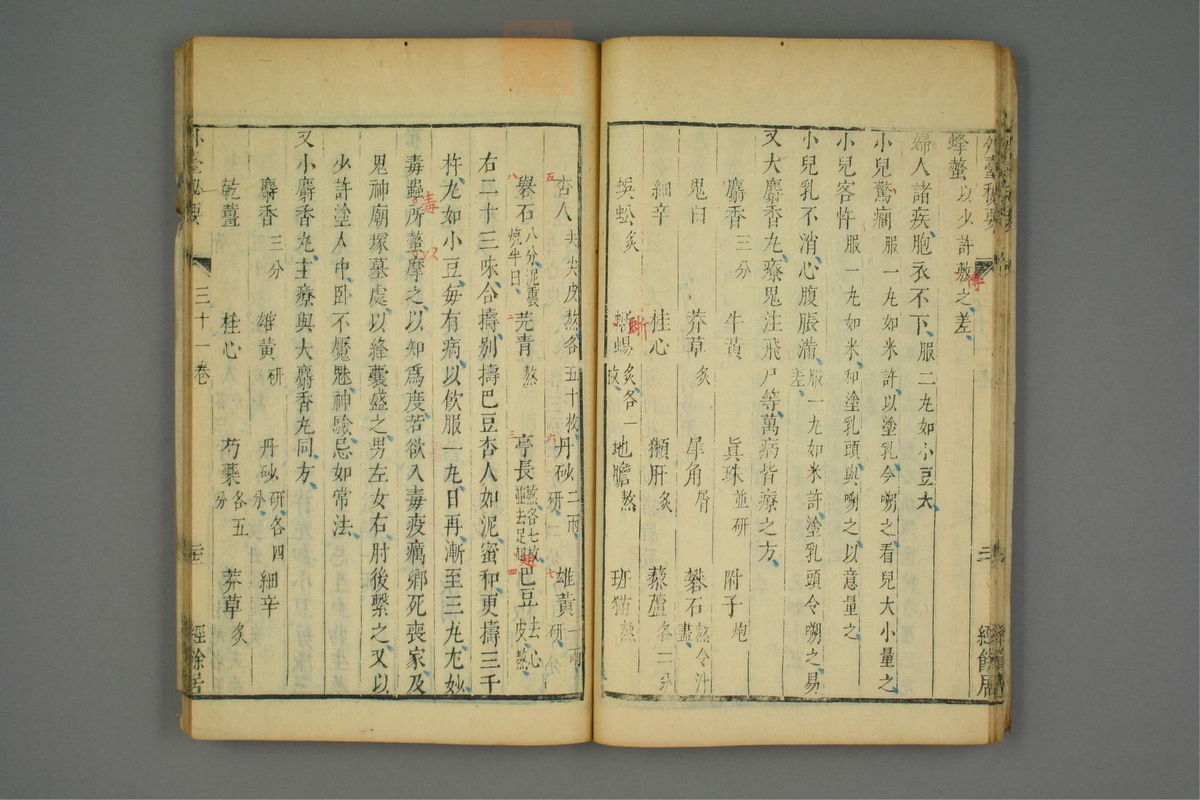 外臺秘要
蜂螫以少許敷之差
傅
婦人諸疾胞衣不下服二丸如小豆大
小兒驚癇服一丸如米許以塗乳令嗍之看兒大小量之
小兒客忤服一丸如米和塗乳頭與嗍之以意量之
小兒乳不消心腹脹滿服一丸如米許塗乳頭令嗍之易差
又大麝香丸療鬼注飛尸等萬病皆療之方
麝香三分 牛黃 眞珠並研 附子炮
鬼臼 莽草炙 犀角屑 礬石熬令汁盡
細辛 桂心 獺肝炙 藜蘆各二分
蜈蚣炙 蜥蜴炙各一枚 地膽熬 班猫熬
蜥
經餘居
杏人去尖皮熬各五十枚 丹砂二兩研 雄黃一兩研
五 六 七
礜石八分泥裹燒半日 芫青熬 亭長熬各七枚並去足翅 巴豆去心皮熬
八 二 三 四
右二十三味合擣别擣巴豆杏人如泥蜜和更擣三千
杵丸如小豆每有病以飲服一丸日再漸至三丸尤妙
毒蟲所螫摩之以知爲度若欲入毒疫癘鄉死喪家及
毒 以
鬼神廟塚墓處以絳囊盛之男左女右肘後繫之又以
少許塗人中卧不魘魅神驗忌如常法
又小麝香丸主療與大麝香丸同方
麝香三分 雄黃研 丹砂研各四分 細辛
乾薑 桂心 芍藥各五分 莽草炙
外臺秘要 三十一卷 經餘居